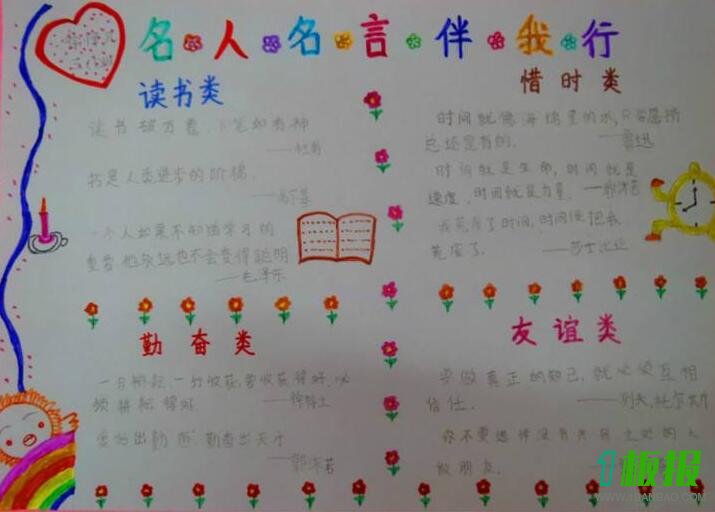 名人名言伴我行
读书类
读书破万卷，下笔如有神
书是人类进步的阶梯.
——高尔基
一个人如果不知道学习的
重要，他永远也不会变得聪明
——毛泽东
惜时类
时间就像海绵里的水，只要愿挤
总还是有的. ——鲁迅
时间就是生命，时间就是
速度，时间就是力量. ——郭沫若
我荒废了时间，时间便把我
荒废了. ——莎士比亚
勤奋类
一分耕耘，一分收获，要收获得好，必
须耕耘得好. ——徐特力
——郭沫若
友谊类
要做真正的知己，就必须互相
信任. ——列夫.托尔斯泰
你不要选择没有共同之处的人
做朋友.
1板报
WWW.1QIANBAO.COM